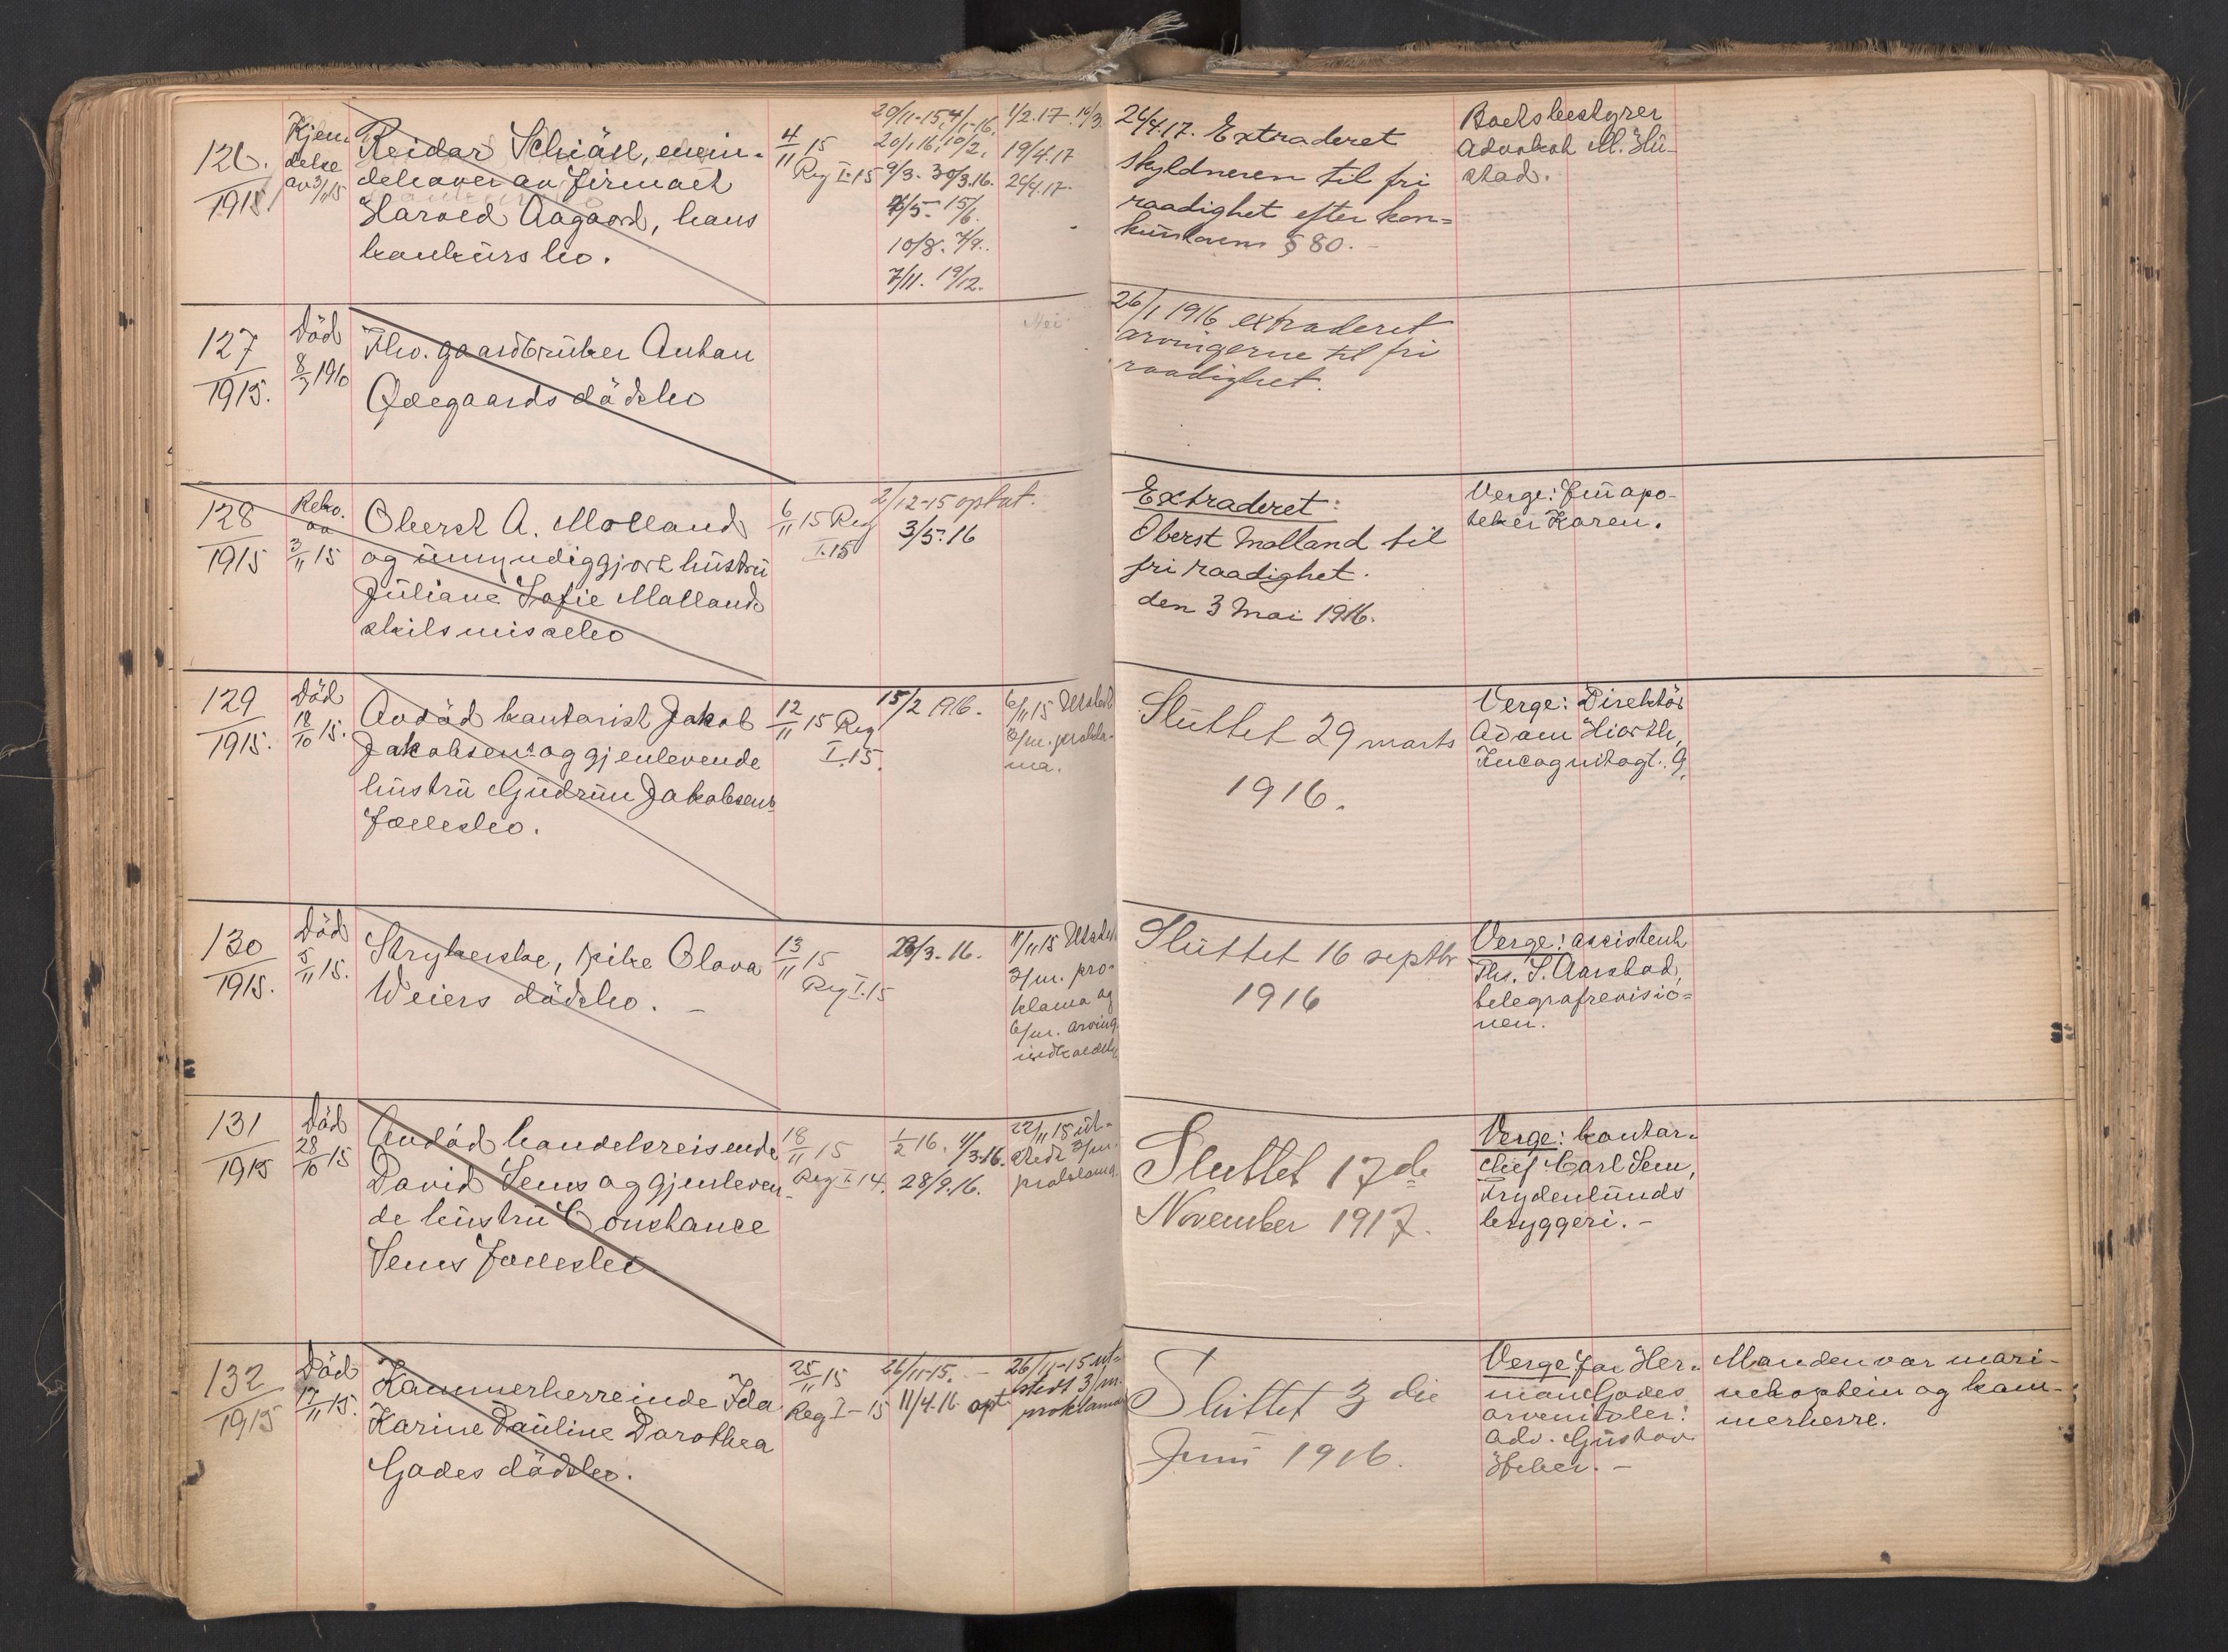 126.
1915.
Kjen-
delse
av 3/11 15
Reidar Schiäll, enein-
dehaver av firmaet
Harold Aagaard, hans
konkursbo.
4/11 15
Reg I. 15
20/11-15, 4/1-16,
20/1 16, 10/2,
9/3. 30/3.16.
15/6.
10/8. 7/9.
7/11. 19/12.
1/2.17.
19/4.17
26/4.17.
26/4.17. Extraderet
skyldneren til fri
raadighet efter kon=
kurslovens § 80. -
Boets bestyrer
Advokat M. Hu-
stad.
127
1915.
Död
8/7 1910
Fhv. gaardbruker Anton
Ødegaards dödsbo
Nei
26/1 1916 extraderet
arvingerne til fri
raadighet.
128
1915
av
3/11 15
Oberst A. Molland
og umyndiggjort hustru
Juliane Sofie Mollands
skilsmissebo
6/11 15 Reg
I.15
2/12-15 optat.
3/5.16
Extraderet:
Oberst Molland til
fri raadighet.
den 3 Mai 1916.
Verge: Fru apo-
teker Karen.
129
1915.
Död
18/10 15.
Avdöd kontorist Jakob
Jakobsens og gjenlevende
hustru Gudrun Jakobsens
fællesbo.
12/11 15 Reg
I.15.
15/2 1916.
6/11 15 Utstedt
3/m. prokla-
ma.
Sluttet 29 marts
1916.
Verge: Direktör
Adam Hiorth,
Incognitogt. 9.
130
1915.
Död
5/11 15.
Strykerske, pike Olava
Weiers dödsbo. -
13/11 15
Reg I.15
23/3. 16.
11/11 15 Utstedt
3/m. pro-
klama og
6/m. arving
indkaldelse
Sluttet 16 septbr
1916
Verge: assistent
Ths. S. Aarstad,
telegrafrevisio=
nen.
131
1915
Död
28/10 15
Avdöd handelsreisende
David Sems og gjenleven-
de hustru Constance
Sems fællesbo
18/11 15
Reg I. 14.
1/2 16. 11/3.16.
28/9.16.
22/11 15 ut-
stedt 3/m.
proklama.
Sluttet 17de
November 1917.
Verge: kontor-
chef Carl Sem,
Frydenlunds
bryggeri. -
132
1915
Död
17/11 15.
Kammerherreinde Ida
Karine Pauline Dorothea
Gades dödsbo.
25/11 15
Reg I-15
26/11-15. -
11/4.16 opt.
26/11-15 ut-
stedt 3/m.
proklama
Sluttet 3 die
Juni 1916.
Verge for Her-
man Gades
arvemidler:
adv. Gustav
Heber. -
Manden var mari-
nekaptein og kam-
merherre.